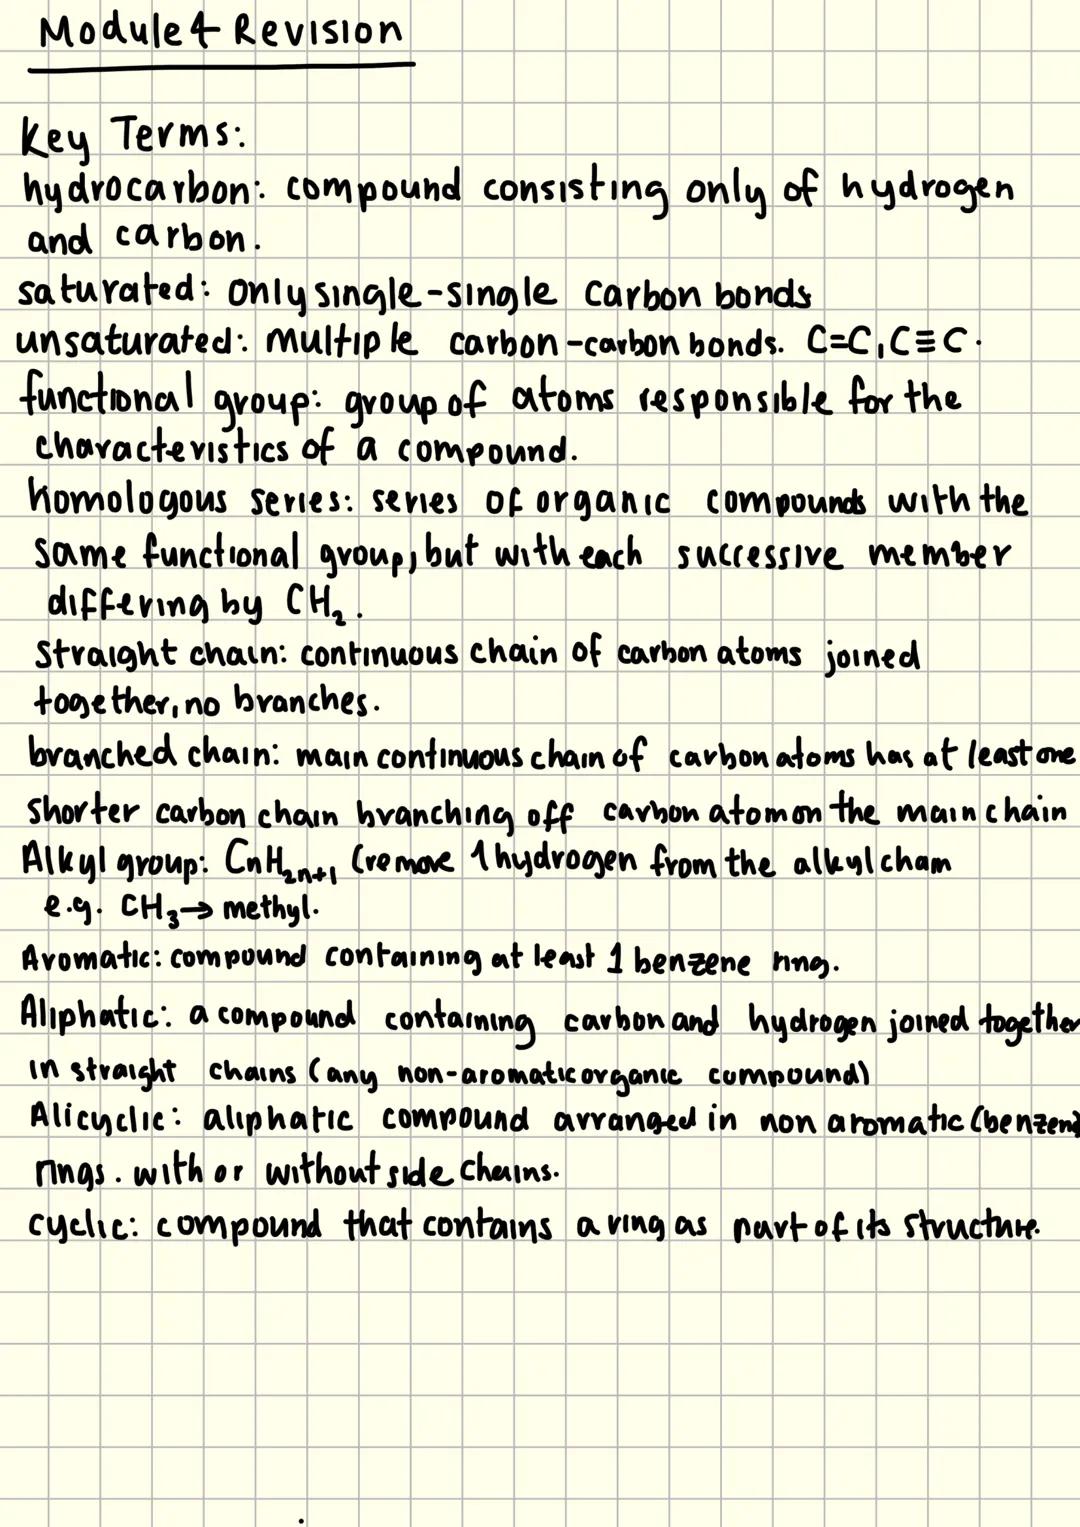 Module 4 Revision
Key Terms:
hydrocarbon: compound consisting only of hydrogen
and carbon.
saturated: only single-single carbon bonds
unsaturated: multiple carbon-carbon bonds. C=C, C≡C.
functional group: group of atoms responsible for the
characteristics of a compound.
Homologous series: series of organic compounds with the
same functional group, but with each successive member
differing by CH₂.
Straight chain: continuous chain of carbon atoms joined
together, no branches.
branched chain: main continuous chain of carbon atoms has at least one
shorter carbon chain branching off carbon atom on the main chain
Alkyl group: CnH₂n+1 (remove 1 hydrogen from the alkyl chain
e.g. CH₃→ methyl.
Aromatic: compound containing at least 1 benzene ring.
Aliphatic: a compound containing carbon and hydrogen joined together
in straight chains (any non-aromatic organic compound)
Alicyclic: aliphatic compound arranged in non aromatic (benzene
rings. with or without side chains.
cyclic: compound that contains a ring as part of its structure.